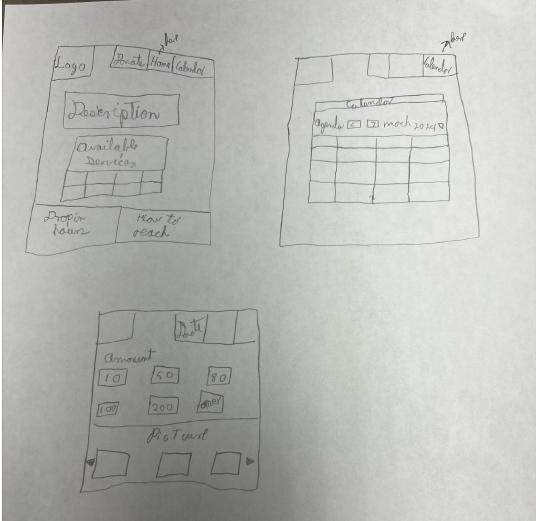 bold
Logo
Donate Home Calendar
Description
Available
Services
Drop in
hours
How to
reach
bold
Calendar
Calendar
Agenda < > march 2024
Amount
10 50 80
100 200 other
Picture